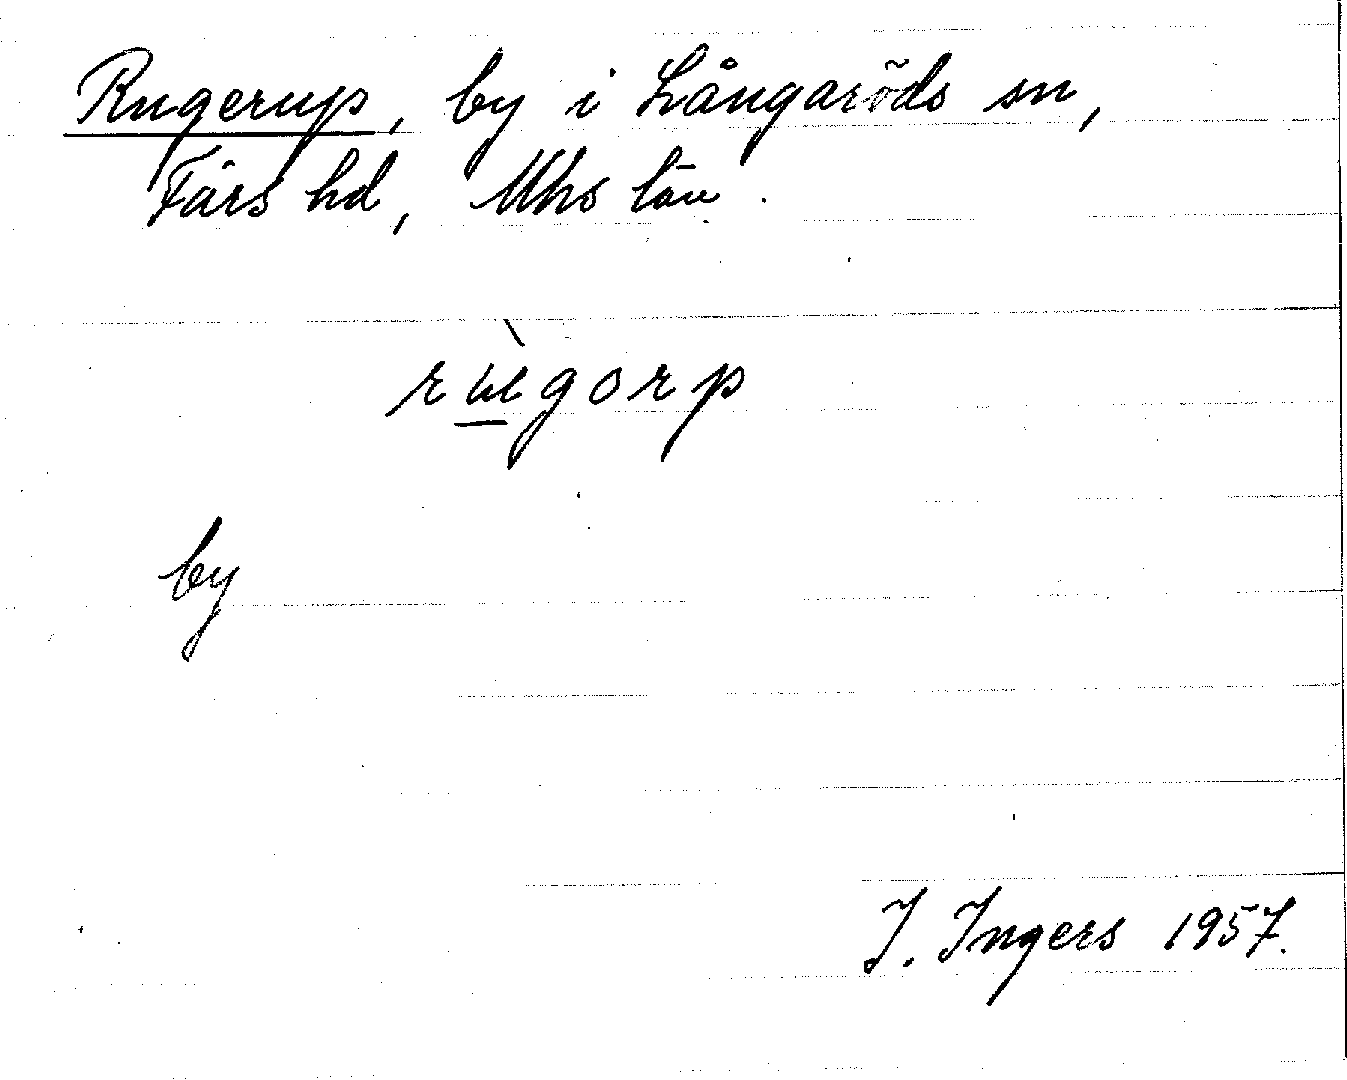 Rugerup, by i Långaröds sn,
Färs hd, Mhs län.
rùgorp
by
I. Ingers 1957.